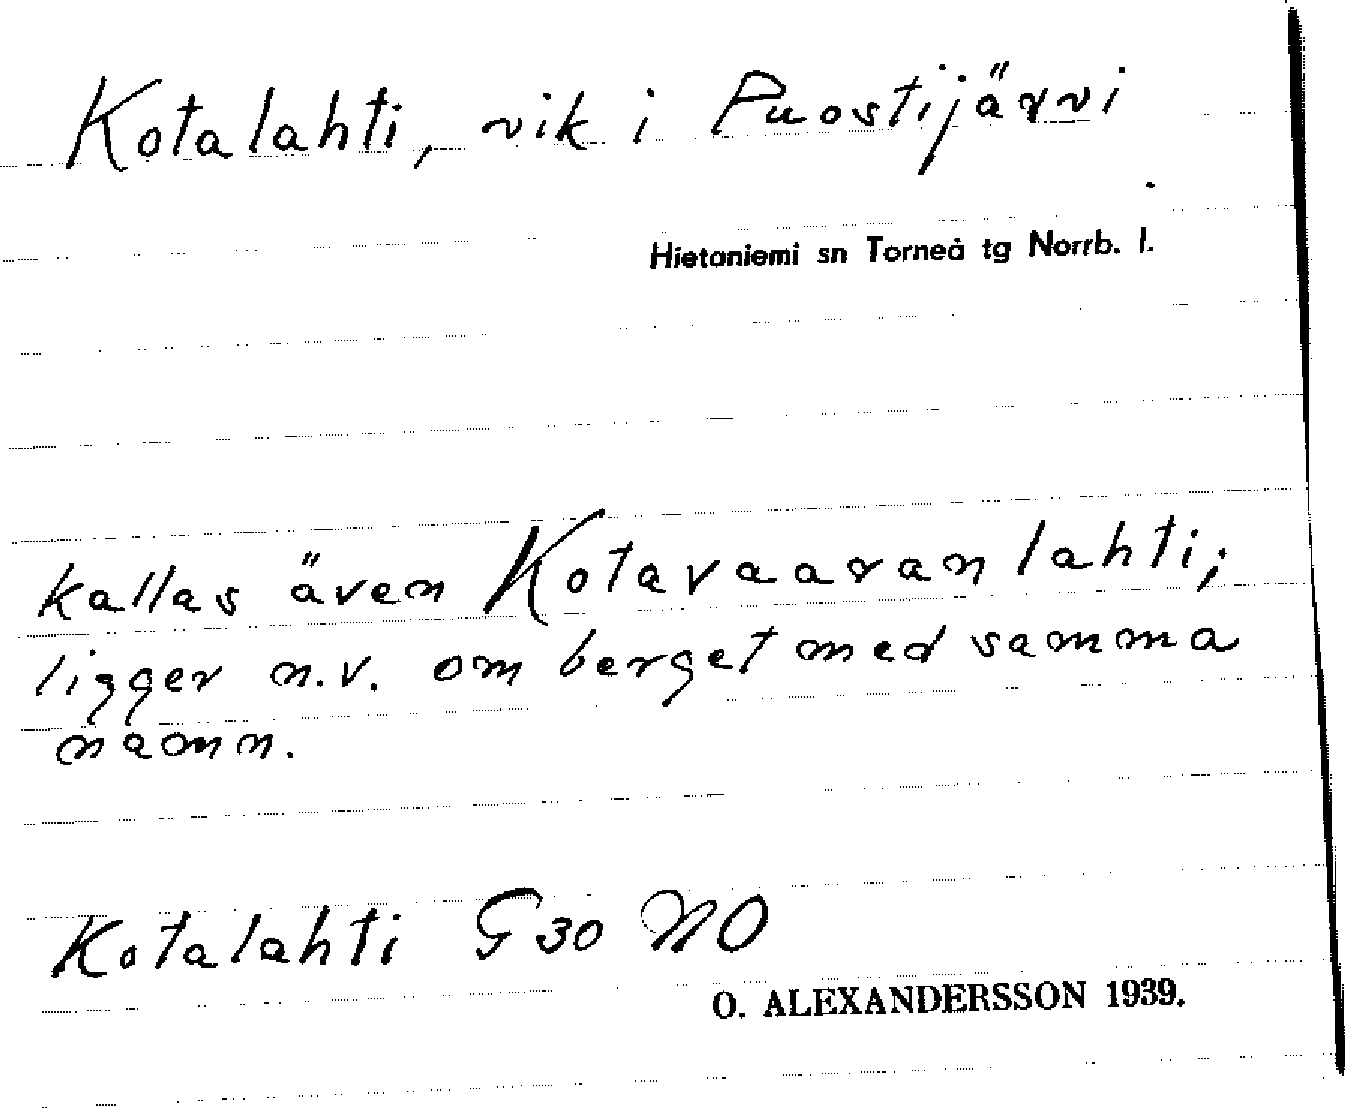 Kotalahti, vik i Puostijärvi
Hietaniemi sn Torneå tg Norrb. l.
kallas även Kotavaaran lahti;
ligger n.v. om berget med samma
namn.
Kotalahti G 30 NO
O. ALEXANDERSSON 1939.